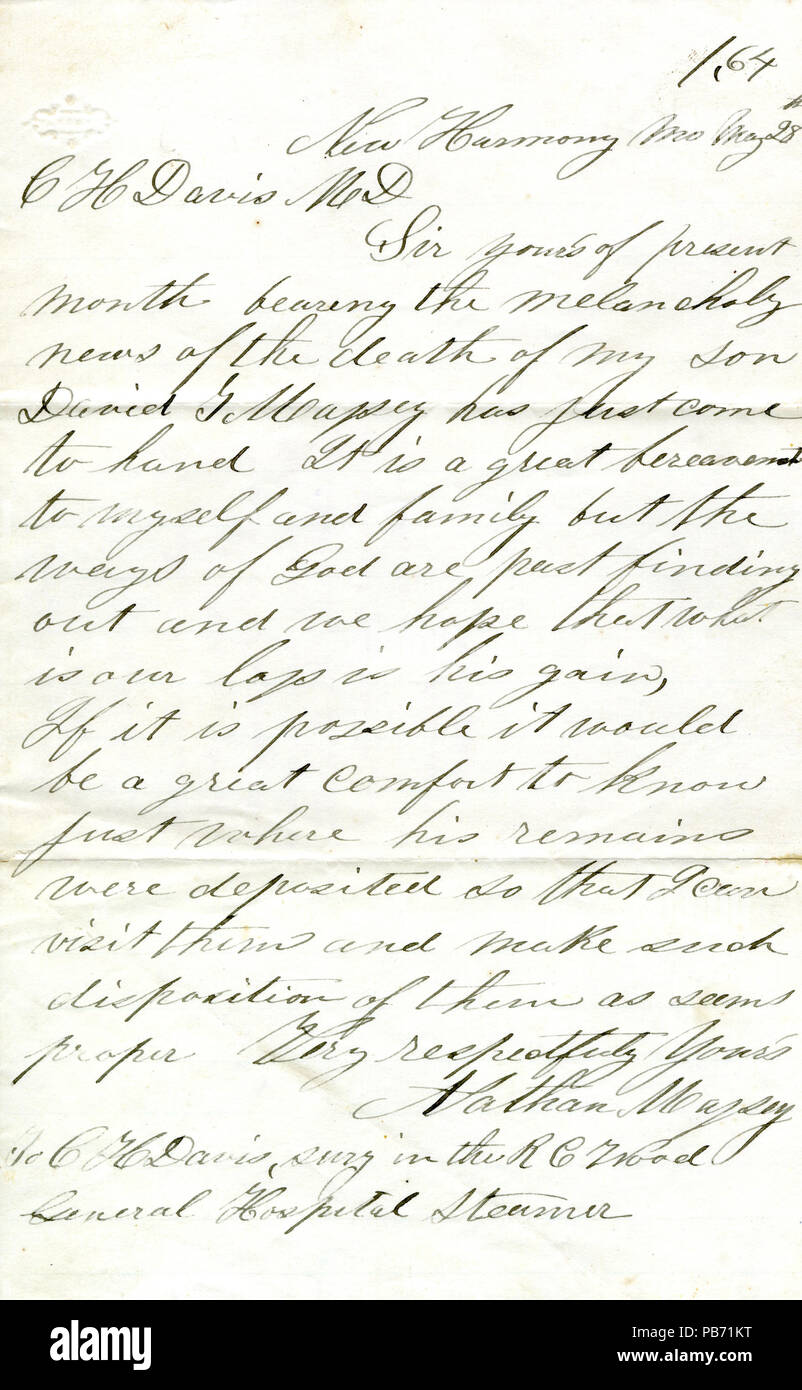 1,64
New Harmony Mo May 28th
C H Davis M D
Sir yours of present
month bearing the melancholy
news of the death of my son
David G Massey has just come
to hand It is a great bereavemnt
to myself and family but the
ways of God are past finding
out and we hope that what
is our loss is his gain,
If it is possible it would
be a great comfort to know
just where his remains
were deposited so that I can
visit them and make such
disposition of them as seems
proper Very respectfuly Yours
Nathan Massey
To C H Davis, surg in the R C Wood
General Hospital Steamer
alamy
Image ID: PB71KT
www.alamy.com